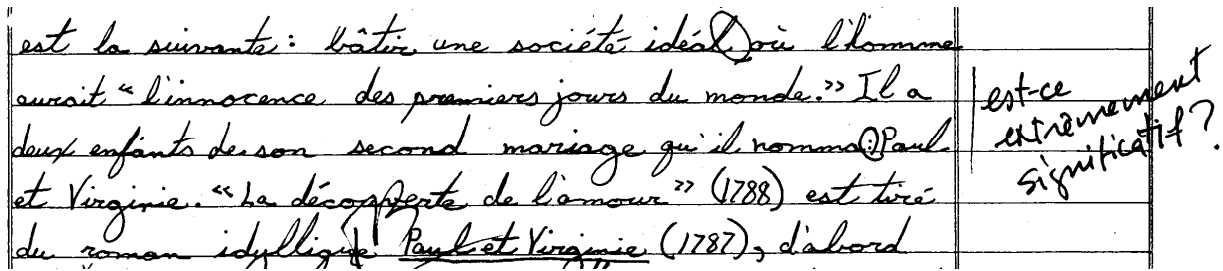 est la suivante : bâtir une société idéal où l'homme
aurait “l'innocence des premiers jours du monde.” Il a
deux enfants de son second mariage qu'il nomma : Paul
et Virginie. “La découverte de l'amour” (1788) est tiré
du roman idyllique Paul et Virginie (1787), d'abord
est-ce
extrêmement
significatif ?